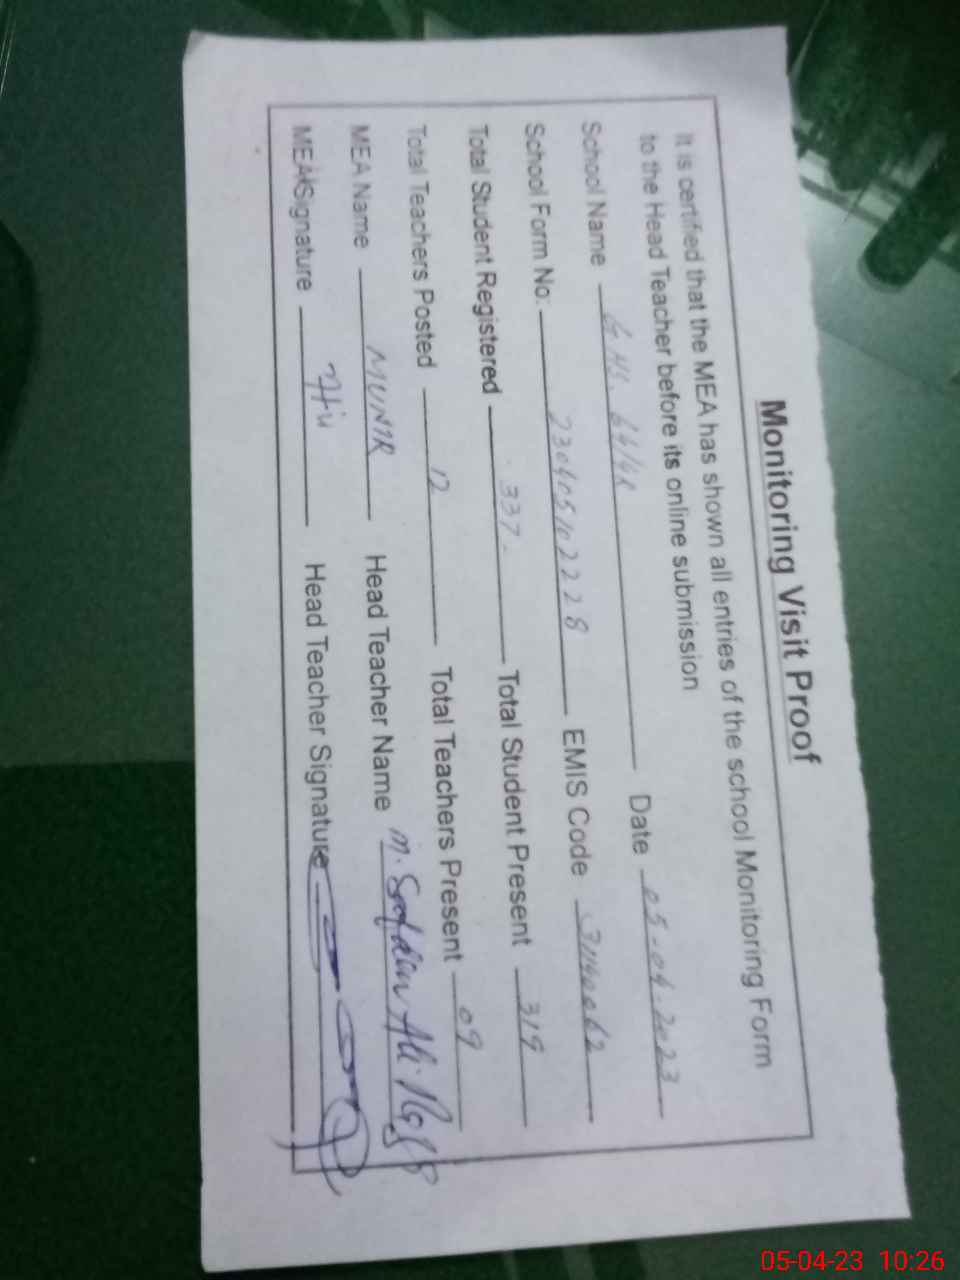 Monitoring Visit Proof
It is certified that the MEA has shown all entries of the school Monitoring Form
to the Head Teacher before its online submission
School Name G HS. 64/4R Date 05-04-2023
School Form No: 230405102228 EMIS Code
Total Student Registered 337 Total Student Present 319
Total Teachers Posted 12 Total Teachers Present 09
MEA Name MUNIR Head Teacher Name M. Ali
MEA Signature Head Teacher Signature
05-04-23 10:26